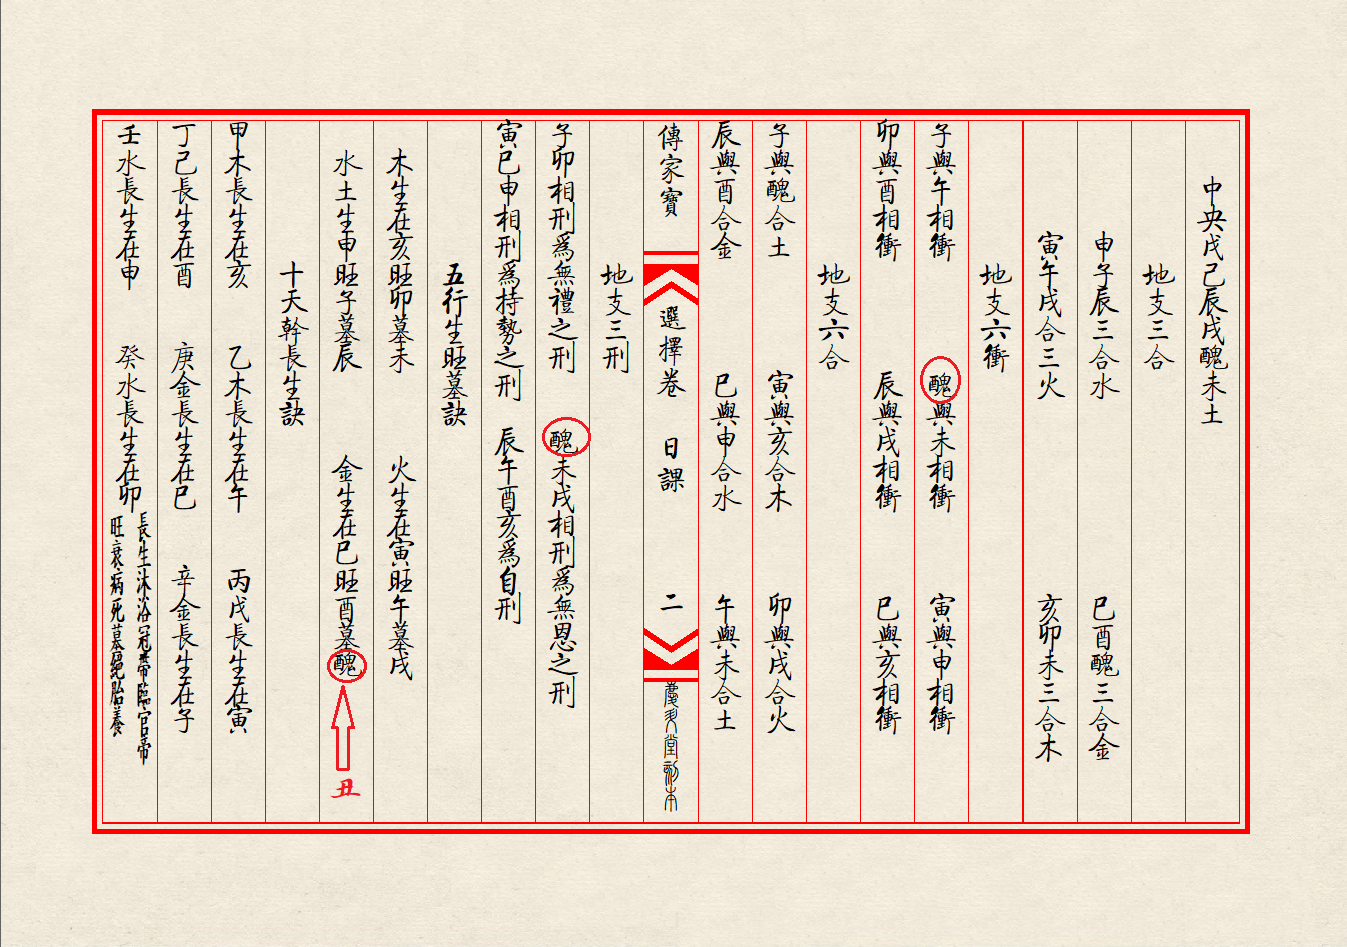 中央戊己辰戌醜未土
地支三合
申子辰三合水 巳酉醜三合金
寅午戌合三火 亥卯未三合木
地支六衝
子與午相衝 醜與未相衝 寅與申相衝
卯與酉相衝 辰與戌相衝 巳與亥相衝
地支六合
子與醜合土 寅與亥合木 卯與戌合火
辰與酉合金 巳與申合水 午與未合土
傳家寶 選擇卷 日課 二
地支三刑
子卯相刑爲無禮之刑 醜未戌相刑爲無恩之刑
寅巳申相刑爲持勢之刑 辰午酉亥爲自刑
五行生旺墓訣
木生在亥旺卯墓未 火生在寅旺午墓戌
水土生申旺子墓辰 金生在巳旺酉墓醜
丑
十天幹長生訣
甲木長生在亥 乙木長生在午 丙戊長生在寅
丁己長生在酉 庚金長生在巳 辛金長生在子
壬水長生在申 癸水長生在卯
長生沐浴冠帶臨官帝
旺衰病死墓絕胎養